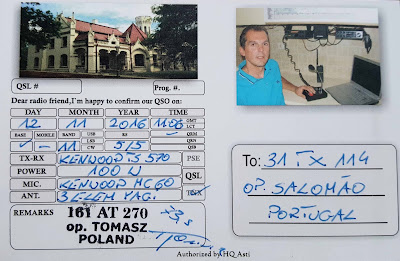 QSL # Prog. #.
Dear radio friend,I'm happy to confirm our QSO on:
DAY MONTH YEAR TIME
12 11 2016 11.06 GMT LCT
BASE MOBILE BAND USB LSB CW QRK QRM QSB
✓ - 11 5/5
TX-RX KENWOOD TS 570 PSE
POWER 100 W QSL
MIC. KENWOOD MC 60
ANT. 3 ELEM YAGI TNX
REMARKS 161 AT 270 73,s
op. TOMASZ
POLAND
To: 31 TX 114
OP. SALOMÃO
PORTUGAL
Authorized by HQ Asti